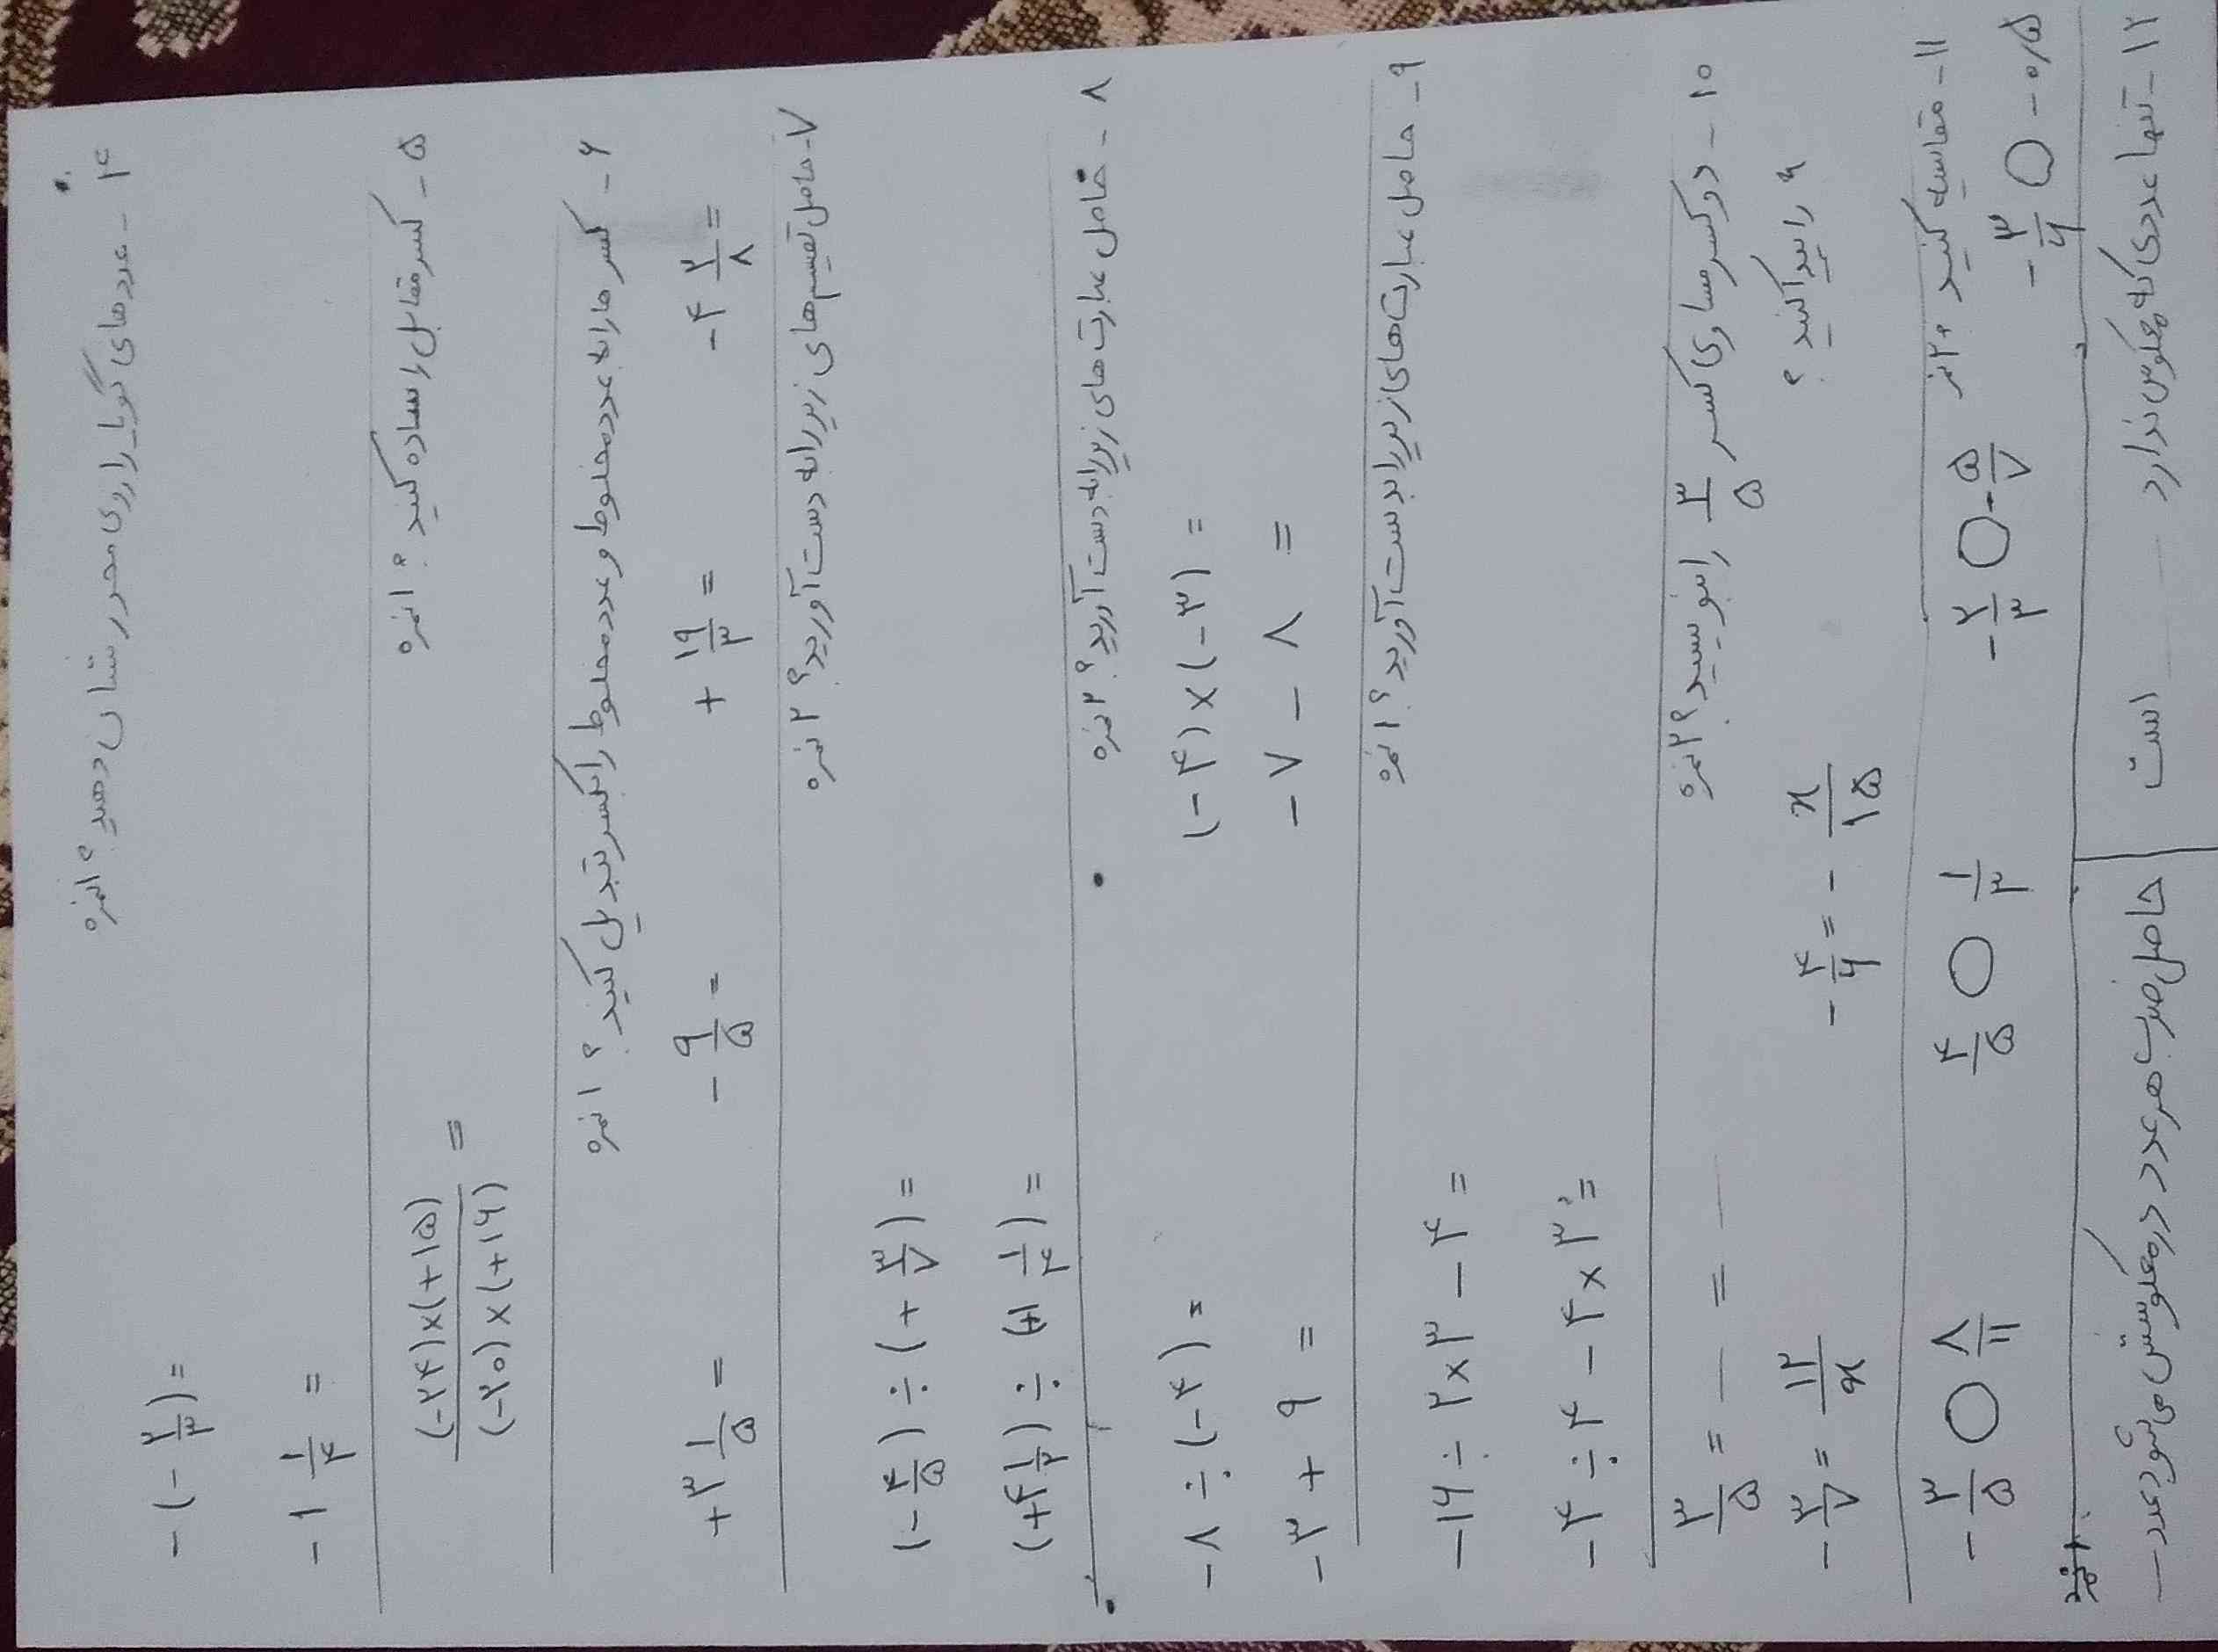 ۴ - عددهای گویا را روی محور نشان دهید؟ ۱نمره
-(-۲/۳) =
-۱ ۱/۴ =
۵ - کسر مقابل را ساده کنید؟ ۱نمره
(-۲۴)×(+۱۵) / (-۲۰)×(+۱۶) =
۶ - کسر ها را به عدد مخلوط و عدد مخلوط را به کسر تبدیل کنید؟ ۱نمره
+۳ ۱/۵ = -۹/۵ = +۱۹/۳ = -۴ ۲/۸ =
۷- حاصل تقسیم های زیر را به دست آورید؟ ۲نمره
(-۴/۵) ÷ (+۳/۷) =
(+۴ ۱/۲) ÷ (+۱ ۱/۴) =
۸ - حاصل عبارت های زیر را به دست آورید؟ ۲نمره
-۸ ÷ (-۴) = (-۴)×(-۳) =
-۳ + ۹ = -۷ - ۸ =
۹ - حاصل عبارت های زیر را بدست آورید؟ ۱نمره
-۱۶ ÷ ۲ × ۳ - ۴ =
-۴ ÷ ۴ - ۴ × ۳ =
۱۰ - دو کسر مساوی کسر ۳/۵ را بنویسید؟ ۲نمره
۳/۵ = — = —
-۳/۷ = ۱۲/x -۴/۶ = -x/۱۵ x را پیدا کنید؟
۱۱ - مقایسه کنید ۲نمره
-۳/۵ ○ ۸/۱۱ ۴/۵ ○ ۱/۳ -۲/۳ ○ -۵/۷ -۳/۶ ○ -۰/۵
۱۲ - تنها عددی که معکوس ندارد ____ است
حاصل ضرب هر عدد در معکوسش می شود عدد —
۱نمره